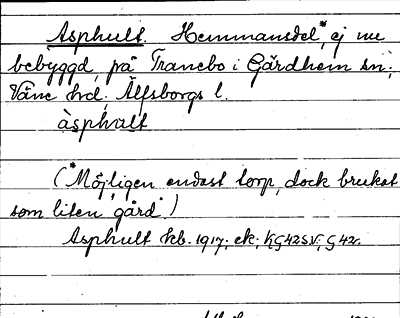 Asphult. Hemmansdel,* ej nu
bebyggd på Tranebo i Gärdhem sn;
Väne hd, Älfsborgs l.
àsphult
(*Möjligen endast torp, dock brukat
som liten gård.)
Asphult kb. 1917; ek; KG42SV; G42.